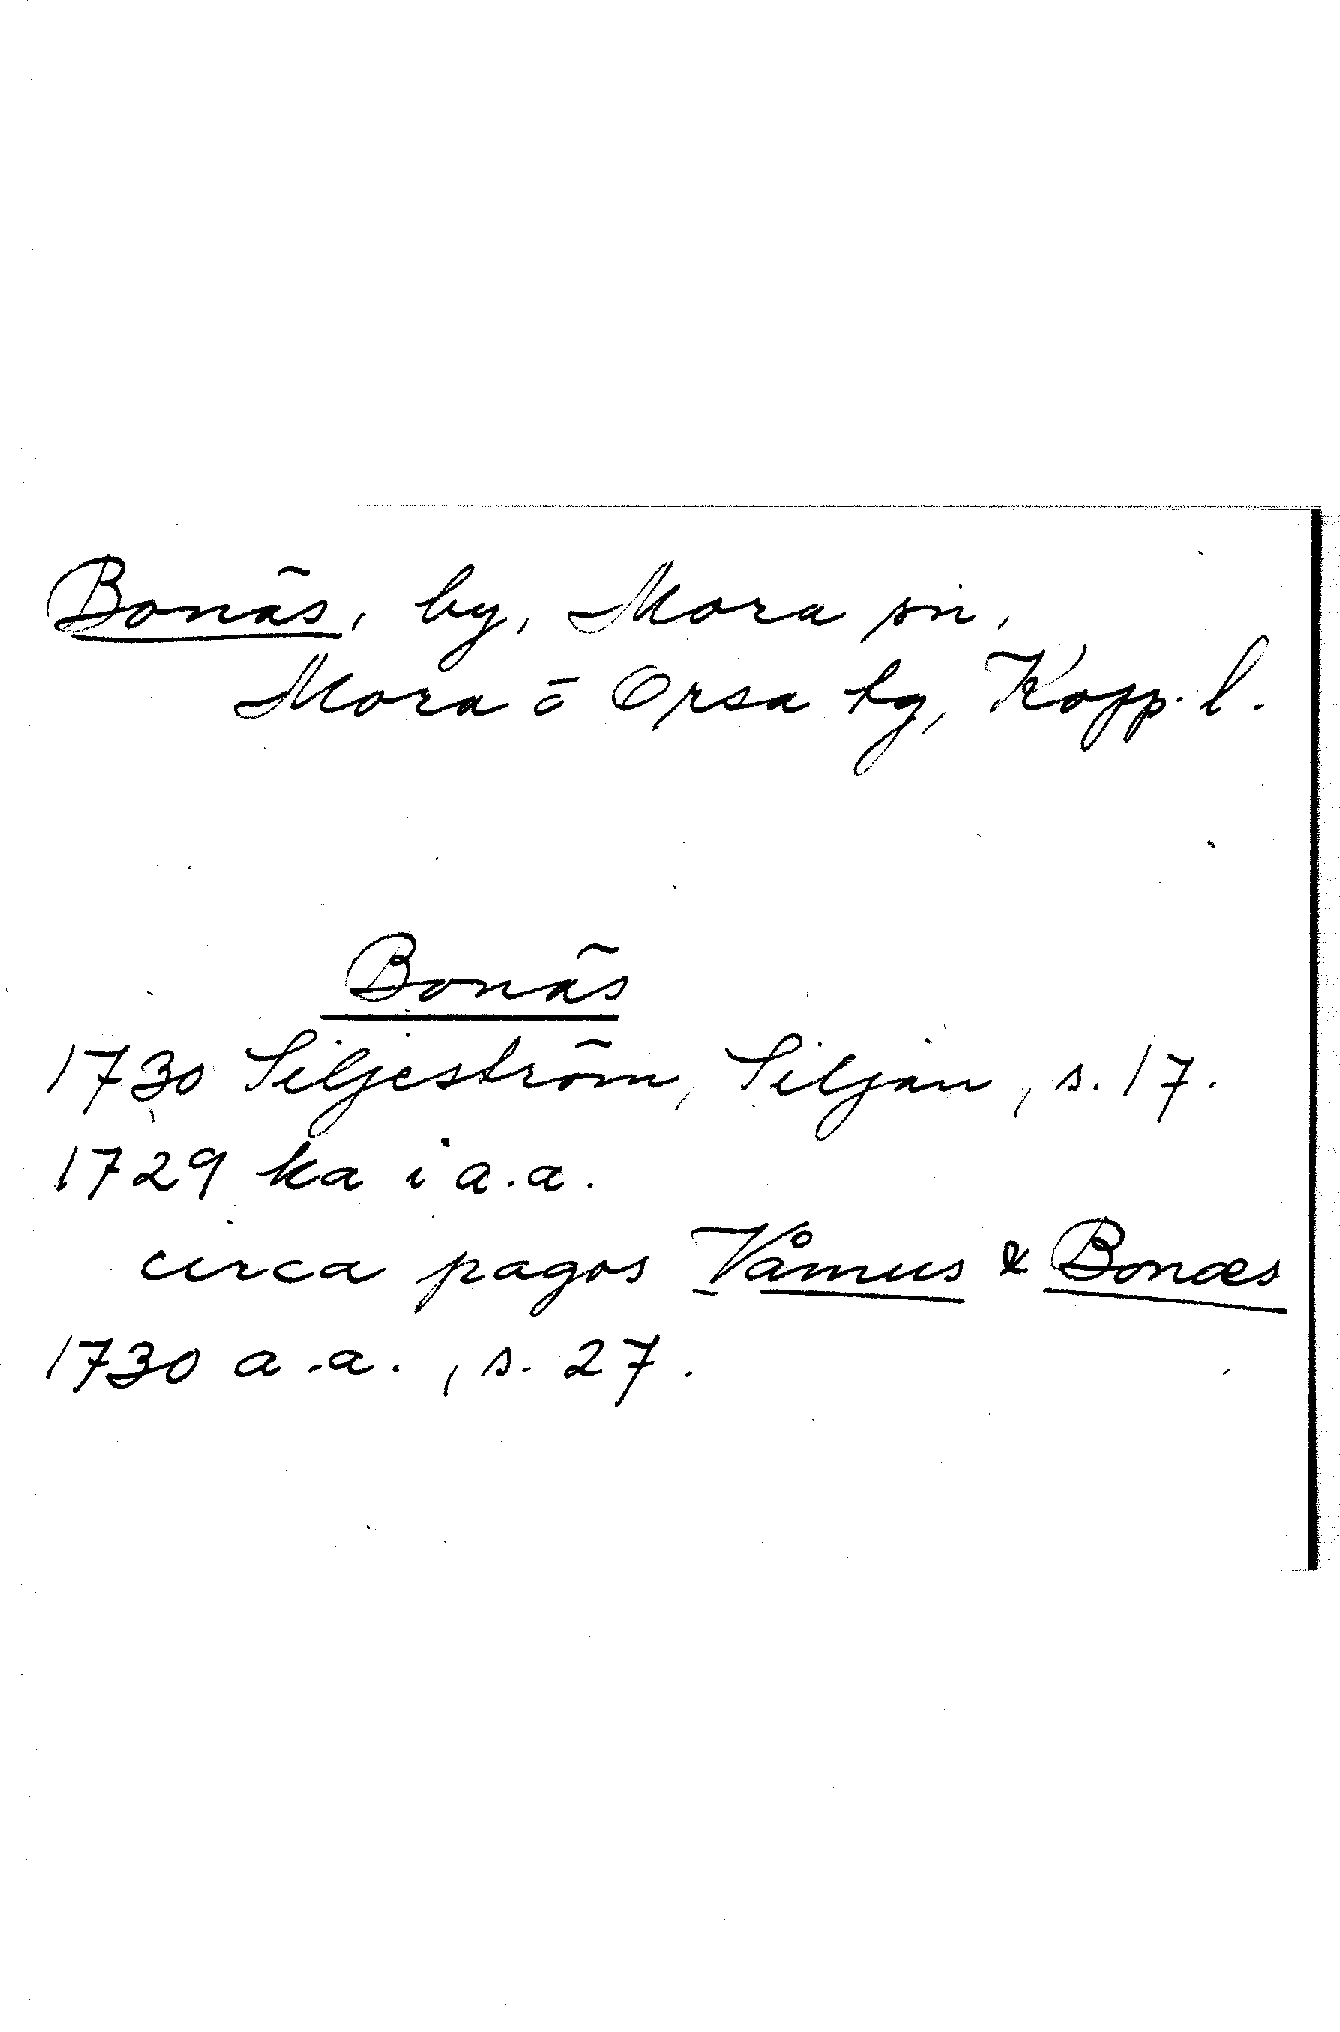 Bonäs, by, Mora sn,
Mora o Orsa tg, Kopp. l.
Bonäs
1730 Siljeström, Siljan, s. 17.
1729 ka i a.a.
circa pagos Våmus & Bonæs
1730 a.a., s. 27.